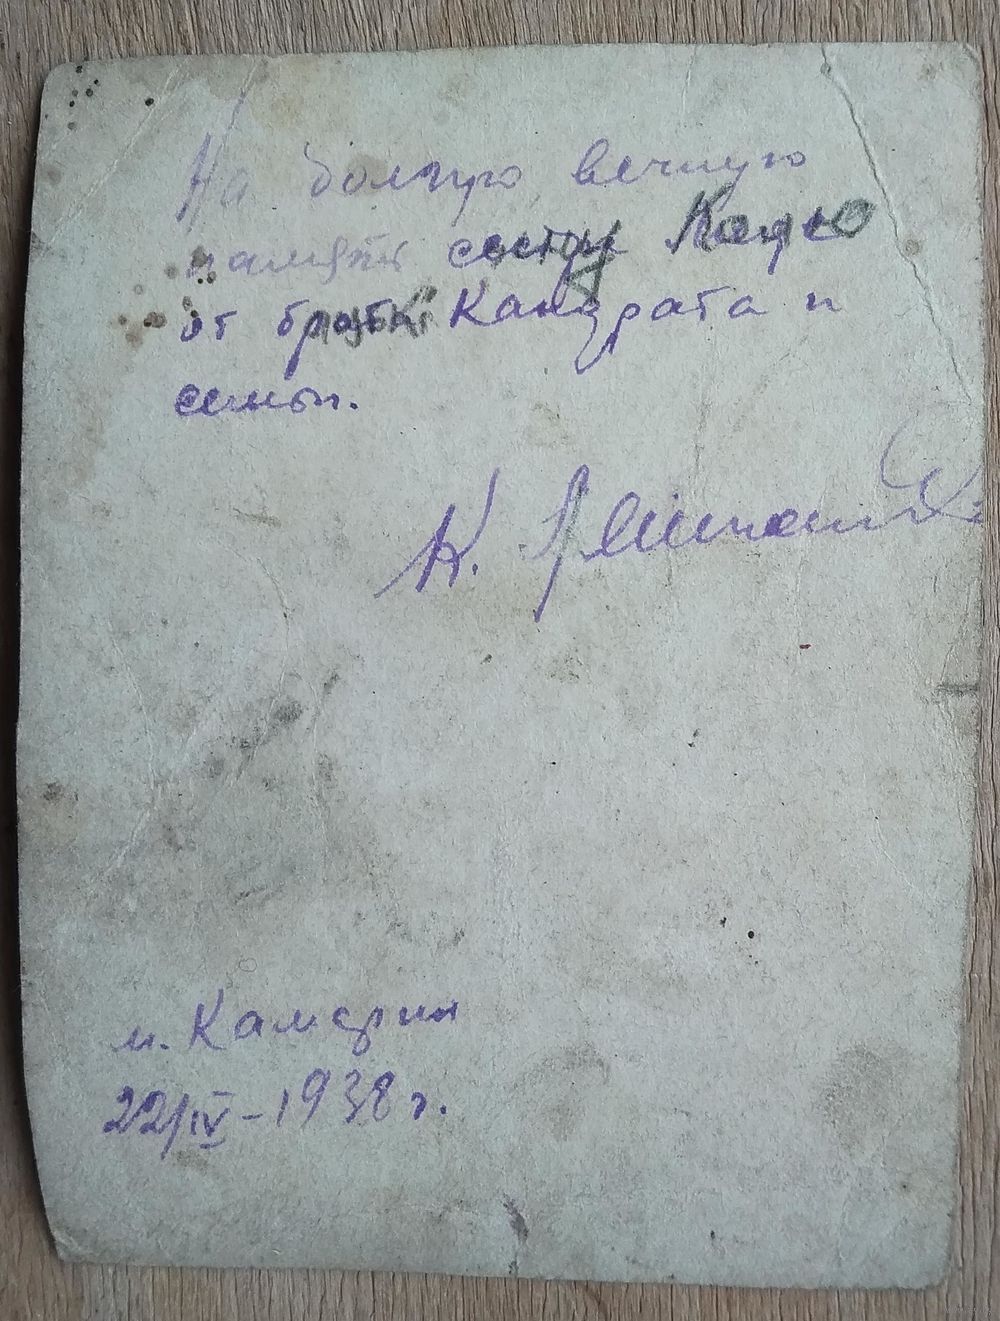 На долгую вечную
память сестру Кацю
от братки Кандрата и
семьи.
К.
м. Камарин
22/IV - 1938 г.